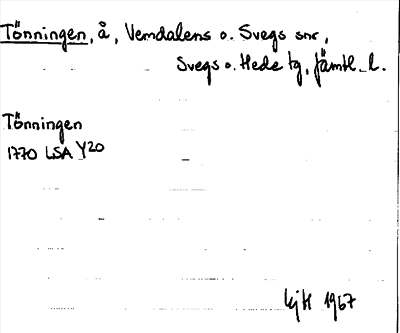 Tönningen, å, Vemdalens o. Svegs snr,
Svegs o. Hede tg, Jämtl. l.
Tönningen
1770 LSA Y20
1967